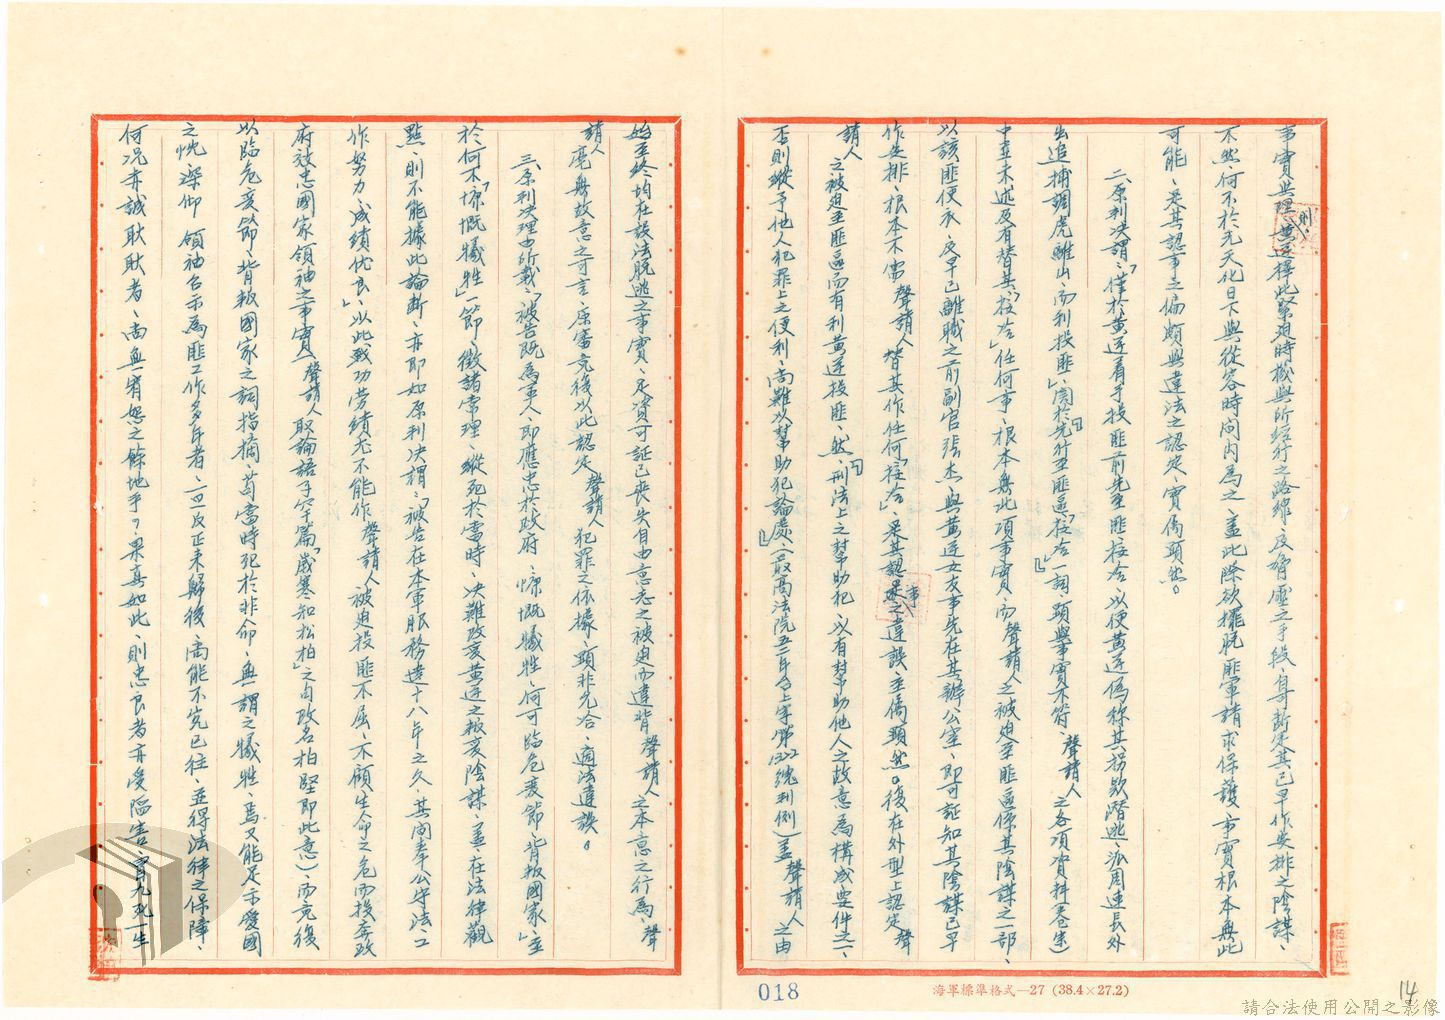 事實與理則黃逆擇此緊迫時機與所經行之路線、及脅靈之手段、身新是其已早作安排之陰謀、
不然何不於光天化日下與從容時間內為之、蓋此際欲擺脫匪軍請求保護、市實根本無此
可能、是其認事之偏頗與違法之認定、實僑頭然。
二、原判決謂：「僅於黃逆着手投匪前先至匪接洽、以便黃逆偽称其拐欵潛逃、派周連長外
出追捕調虎離山、而利投匪」關於「先行至匪區「接洽」」一詞顯與事實不符、聲請人之各項資料卷宗
中並未述及有替其「接洽」任何事、根本無此項事實、而聲請人之被迫至匪區係其陰謀之一部、
以該匪便衣、及早已離職之前副官張杰與黃逆女友事先在其辦公室、即可証知其陰謀已早
作安排、根本不需聲請人替其作任何「接洽」、是其認事之違誤、至僑顯然。復在外型上認定聲
請人之被迫至匪區而有利黃逆投匪、然「刑法上之幫助犯、以有幫助他人之故意為構成要件之一、
否則縱予他人犯罪上之便利、尚難以幫助犯論處」（最高法院五二年台上字第1322號判例）蓋聲請人之由
始至終均在設法脫逃之事實、足資可証已喪失自由意志之被迫而違背聲請人之本意之行為、聲
請人毫無故意之可言、原審竟復以此認定聲請人犯罪之依據、顯非允洽、適法違誤。
三、原判決理由所載「被告既為軍人即應忠於政府、慷慨犧牲、何可臨危变節、背叛國家」、至
於何不「慷慨犧牲」一節、徵諸常理、縱死於當時、決難改变黃逆之叛变陰謀、蓋在法律觀
點、則不能據此論断、亦即如原判決謂：「被告在本軍服務達十八年之久、其間奉公守法工
作努力、成績优良」、以此戰功勞績无不能作聲請人被迫投匪不屈、不顧生命之危而投奔政
府效忠國家領袖之事實（聲請人取論語子罕篇「歲寒知松柏」之句改名柏堅即此意）、而竟復
以臨危变節、背叛國家之詞指摘、苟當時死於非命、無謂之犧牲、焉又能足示愛國
之忱、深仰　領袖召示為匪工作多年者、一旦反正来歸後、尚能不究已往、並得法律之保障、
何况亦誠耿耿者、尚無宥恕之餘地乎？果真如此、則忠良者亦受陷害、冒九死一生
018
海軍標準格式—27（38.4×27.2）
14
請合法使用公開之影像